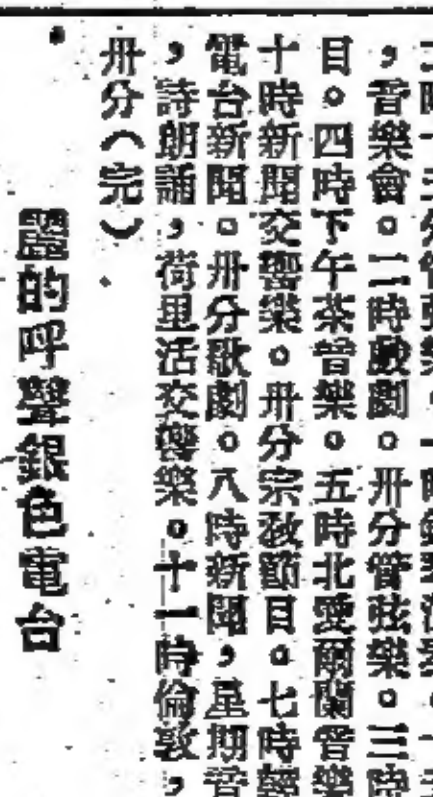 ，音樂會。二時戲劇。卅分管弦樂。三時
目。四時下午茶音樂。五時北愛爾蘭音樂
十時新聞交響樂。卅分宗敎節目。七時輕
電台新聞。卅分歌劇。八時新聞，星期音
，詩朗誦，荷里活交響樂。十一時倫敦，
卅分（完）
的呼聲銀色電台